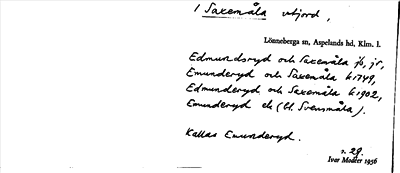 1 Saxemåla utjord,
Lönneberga sn, Aspelands hd, Klm. l.
Edmundsryd och Saxemåla jb, jr,
Emunderyd och Saxemåla k 1749,
Edmunderyd och Saxemåla k 1902,
Emunderyd ek (bl. Svensmåla).
Kallas Emunderyd.
2. 29.
Ivar Modéer 1956